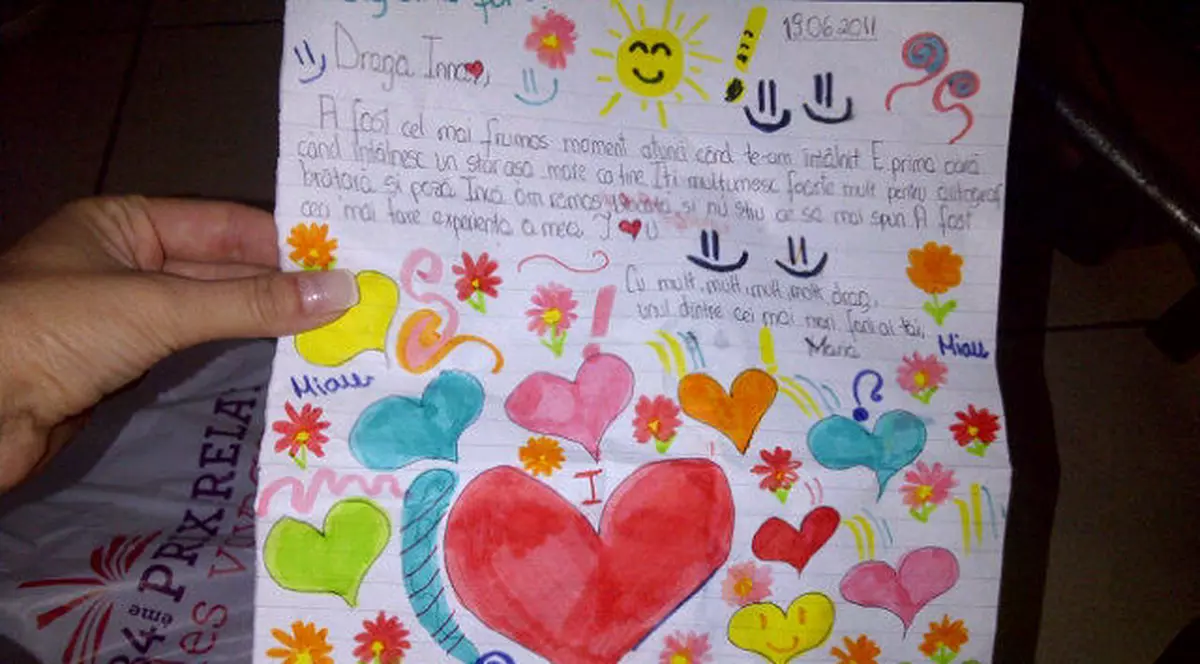 19.06.2011
Draga Inna,
A fost cel mai frumos moment atunci când te-am întâlnit. E prima oară
când întâlnesc un star asa mare ca tine. Iti multumesc foarte mult pentru autograf
brătara si poza. Incă am rămas si nu stiu ce sa mai spun. A fost
cea mai tare experienta a mea. I ❤ U
Cu mult, mult, mult, mult drag,
unul dintre cei mai mari fani ai tăi,
Maria
Miau
Miau
I
34ème PRIX RELAY
des